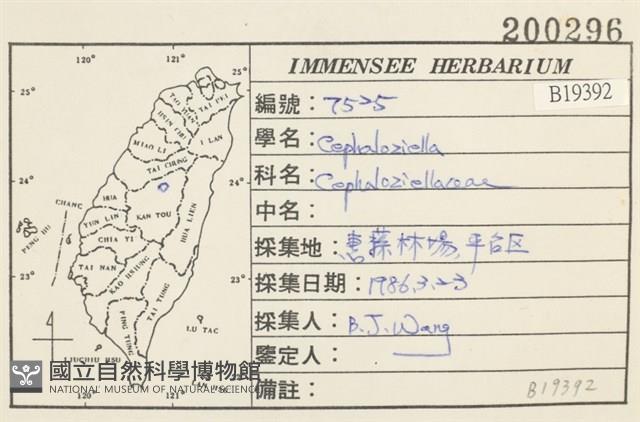 200296
IMMENSEE HERBARIUM
B19392
編號：7525
學名：Cephaloziella
科名：Cephaloziellaceae
中名：
採集地：惠蓀林場,平台区
採集日期：1986.3.23
採集人：B.J.Wang
鑒定人：
備註：
B19392
120° 121°
25° 25°
TAO YUAN
TAI PEI
HSIN CHU
I LAN
MIAO LI
TAI CHUNG
24° 24°
CHANG HUA
PENG HU
YUN LIN
KAN TOU
HUA LIEN
CHIA YI
TAI NAN
KAO HSIUNG
23° 23°
TAI TUNG
PING TUNG
LU TAC
LIUCHIU HSU
120° 121°
國立自然科學博物館
NATIONAL MUSEUM OF NATURAL SCIENCE